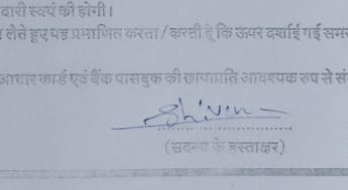 दारी स्वयं की होगी।
लेते हुए यह प्रमाणित करता / करती हूं कि ऊपर दर्शाई गई सम
आधार कार्ड एवं बैंक पासबुक की छायाप्रति आवश्यक रूप से सं
Shivin
(सदस्य के हस्ताक्षर)